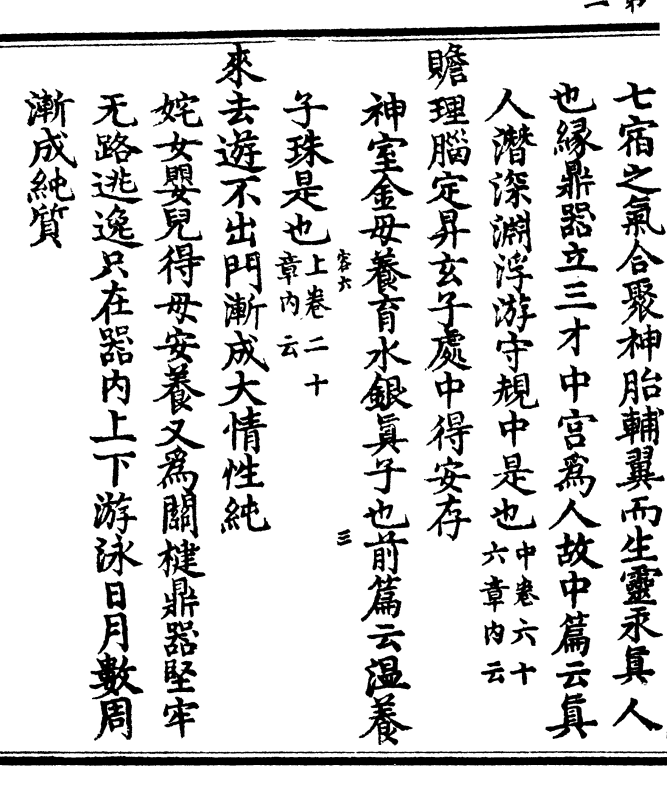 七宿之氣合聚神胎輔翼而生靈汞眞人
也緣鼎器立三才中宮爲人故中篇云眞
人潛深淵浮游守規中是也中卷六十
六章内云
贍理腦定昇玄子處中得安存
神室金母養育水銀眞子也前篇云温養
容六
三
子珠是也上卷二十
章内云
來去遊不出門漸成大情性純
姹女嬰兒得母安養又爲關楗鼎器堅牢
无路逃逸只在器内上下游泳日月數周
漸成純質